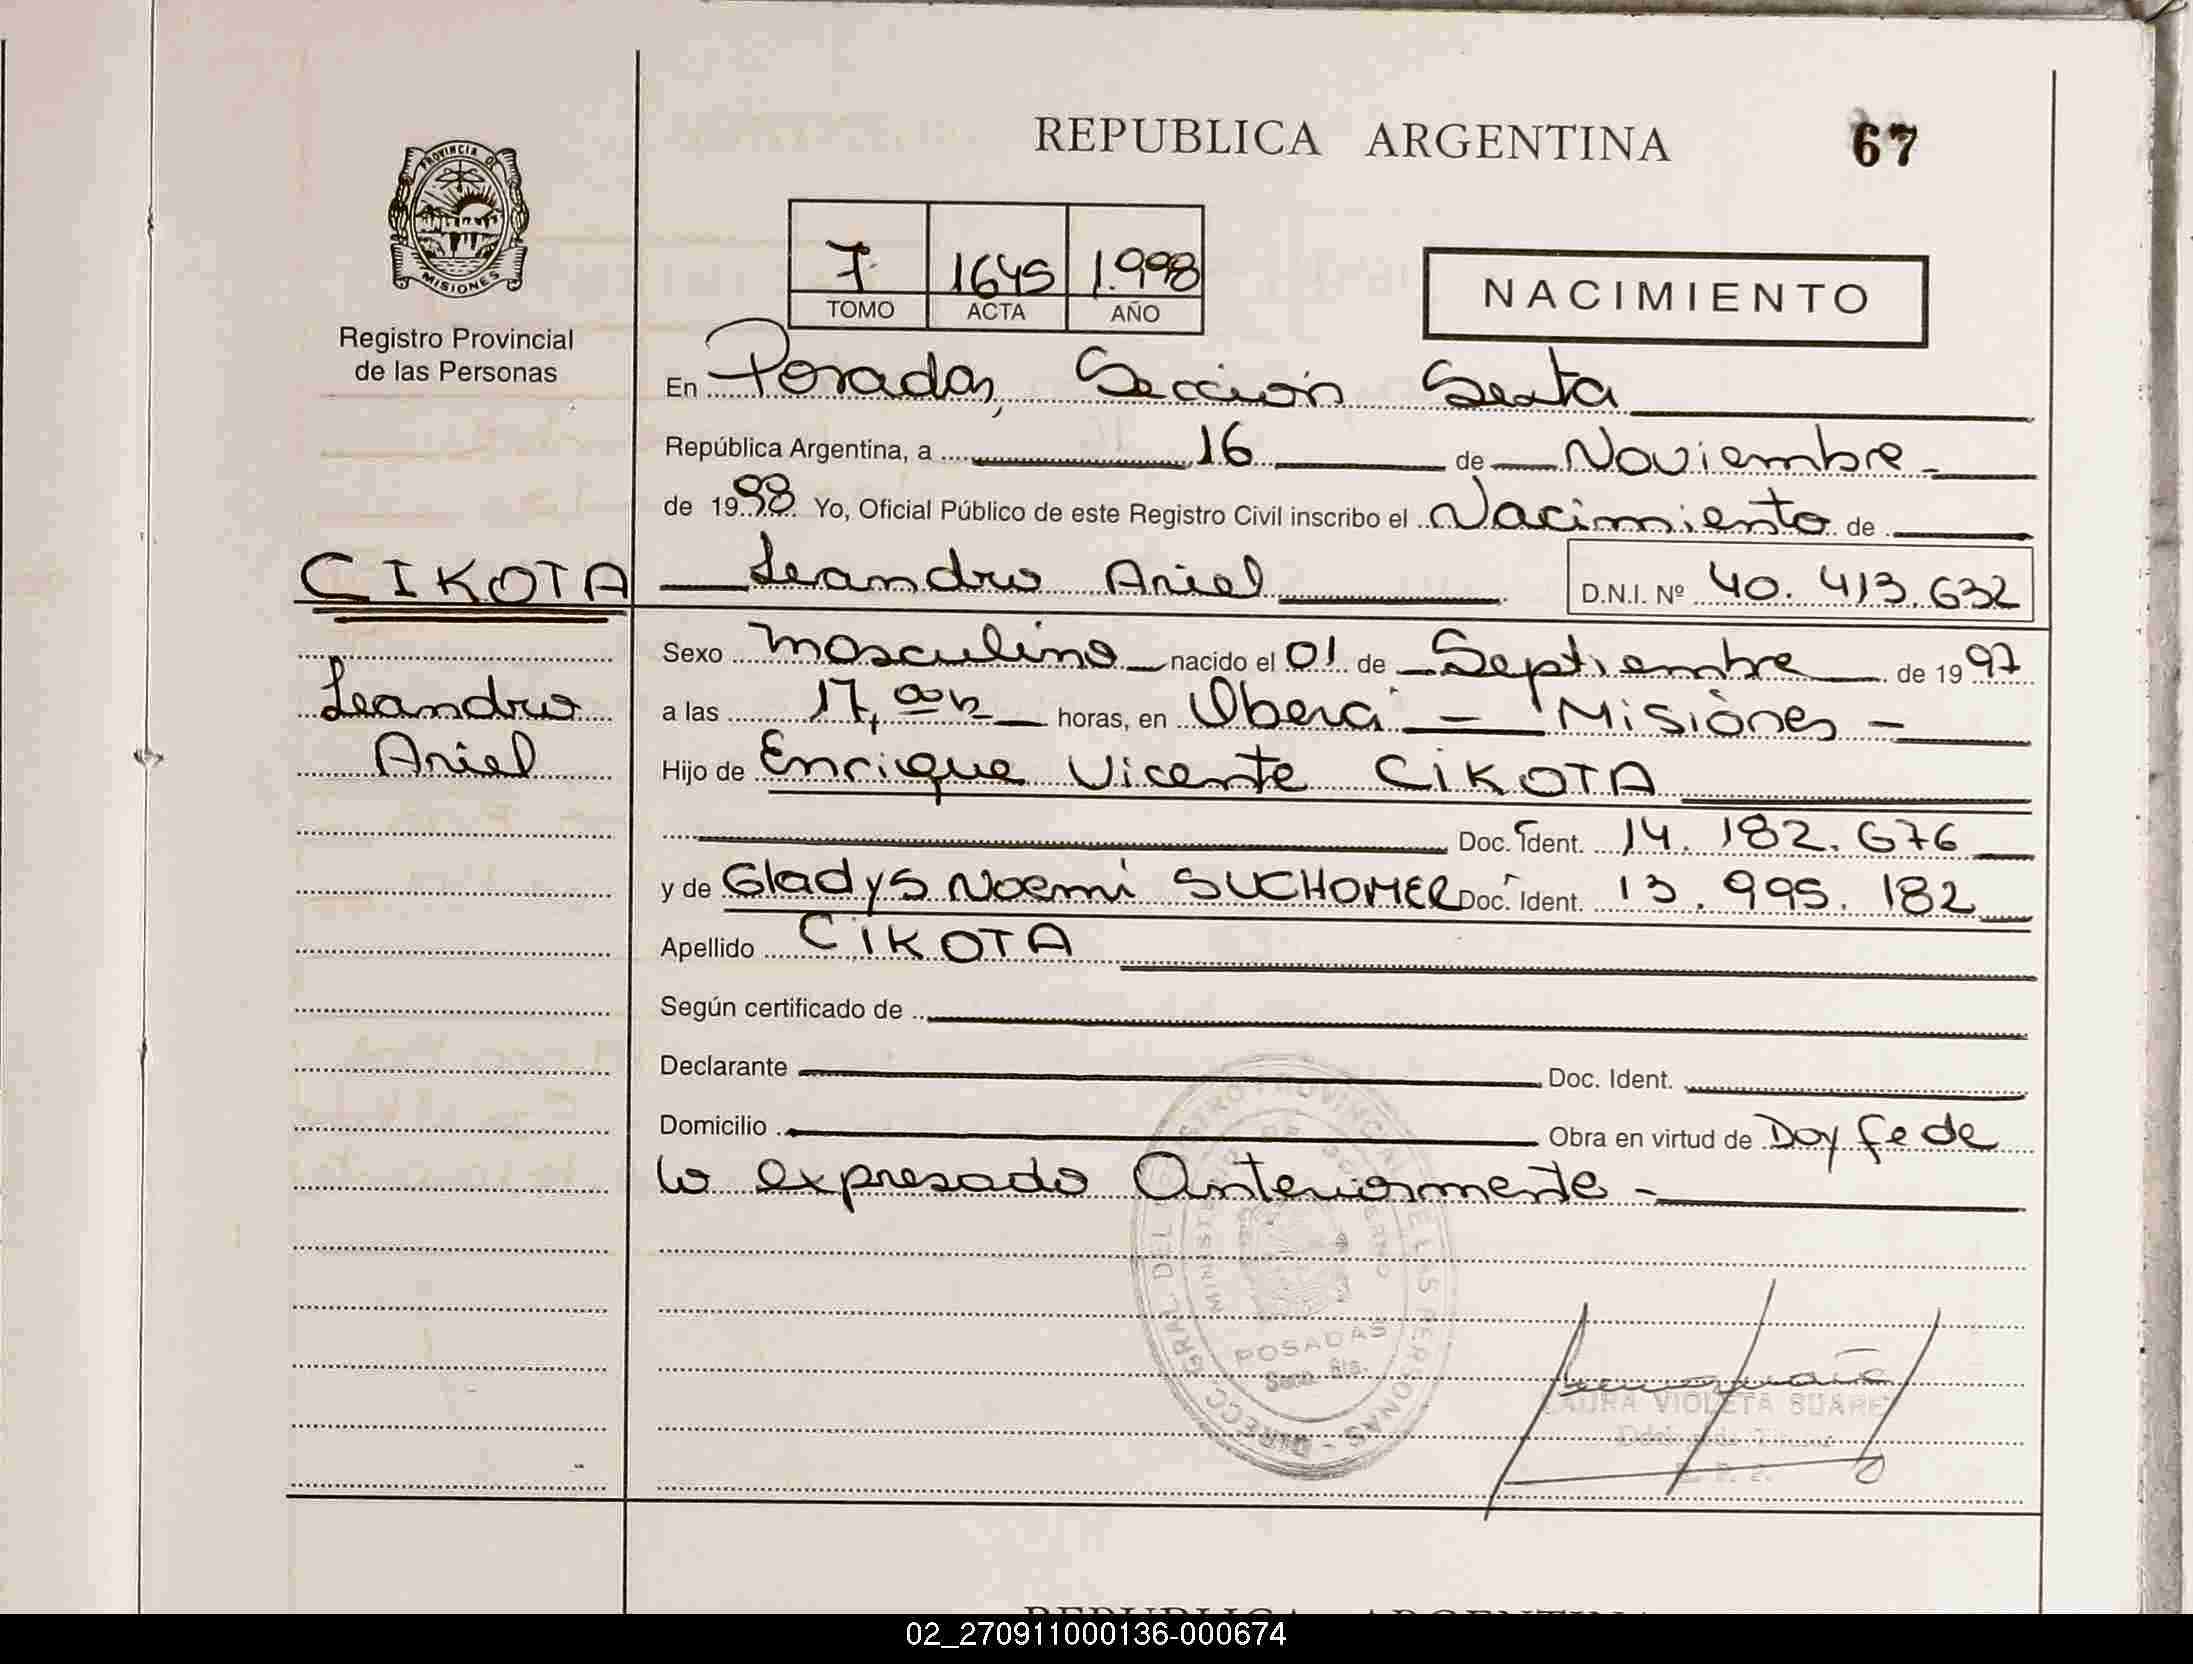 REPUBLICA ARGENTINA
67
PROVINCIA DE
MISIONES
Registro Provincial
de las Personas
7 1645 1.998
TOMO ACTA AÑO
NACIMIENTO
En Posadas, Sección Sexta
República Argentina, a 16 de Noviembre
de 1998 Yo, Oficial Público de este Registro Civil inscribo el Nacimiento de
CIKOTA
Leandro Ariel D.N.I. Nº 40.413.632
Sexo Masculino nacido el 01 de Septiembre de 1997
Leandro
a las 17,00 h horas, en Oberá - Misiones -
Ariel
Hijo de Enrique Vicente CIKOTA
Doc. Ident. 14.182.676
y de Gladys Noemí SUCHOMER Doc. Ident. 13.995.182
Apellido CIKOTA
Según certificado de
Declarante Doc. Ident.
Domicilio Obra en virtud de Doy fe de
lo expresado Anteriormente -
DIRECC. GRAL. DEL REGISTRO PROVINCIAL DE LAS PERSONAS -
MINISTERIO DE GOBIERNO
POSADAS
Secc. 6ta.
LAURA VIOLETA SUAREZ
REPUBLICA ARGENTINA
02_270911000136-000674